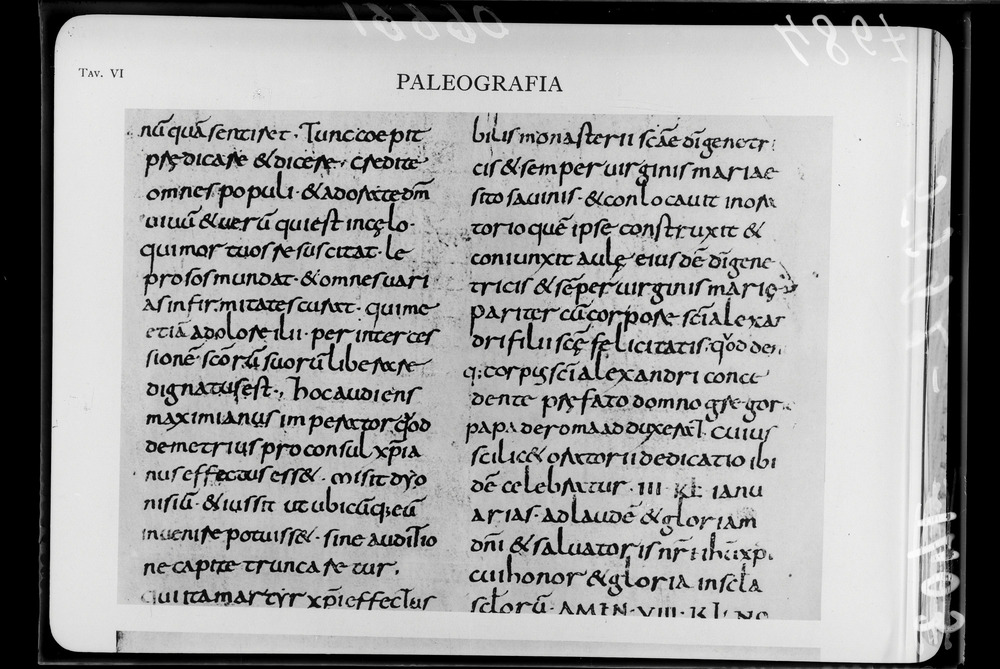 Tav. VI
PALEOGRAFIA
nū quā sentiret. Tunc coepit
prędicare & dicere. credite
omnes populi. & adorate dm̄
uiuū & uerū qui est in cęlo.
qui mortuos resuscitat. le
prosos mundat. & omnes uari
as infirmitates curat. qui me
etiā a dolore ilii. per interces
sionē scōrū suorū liberare
dignatus est., hoc audiens
maximianus imperator qd̄
demetrius proconsul xp̄ia
nus effectus ess&. misit dyo
nisiū. & iussit ut ubicūq; eū
inuenire potuiss&. sine auditio
ne capite truncaretur.
qui ita martyr xp̄i effectus
bilis monasterii scāe dī genetr
cis & semper uirginis mariae
sito sauinis. & conlocauit in ora
torio quē ipse construxit &
coniunxit aulę eius dē dī gene
tricis & sēper uirginis marię
pariter cū corpore scī alexan
dri filii scę felicitatis. qd̄ den
q; corpus scī alexandri conce
dente pręfato domno gregor
papa de roma adduxerat. cuius
scilic& oratorii dedicatio ibi
dē celebratur. III. KL ianu
arias. ad laudē & gloriam
dn̄i & saluatoris nr̄i ihū xp̄i
cui honor & gloria in scla
sclorū. AMEN. VIII. KL.